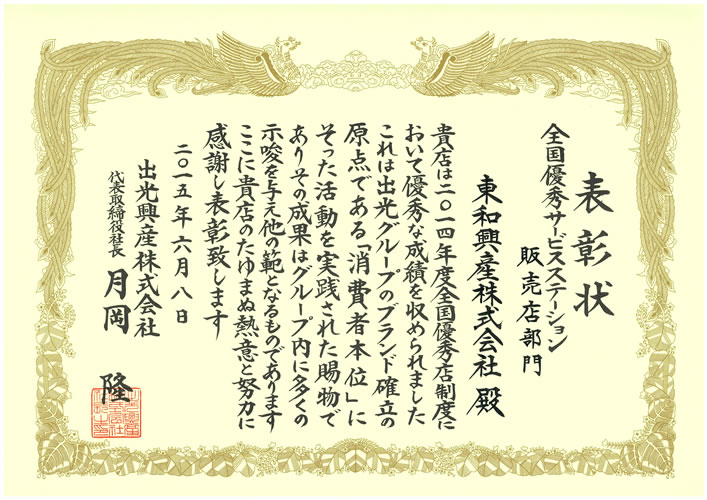 表彰状
全国優秀サービスステーション
販売店部門
東和興産株式会社 殿
貴店は二〇一四年度全国優秀店制度に
おいて優秀な成績を収められました
これは出光グループのブランド確立の
原点である「消費者本位」に
そった活動を実践された賜物で
ありその成果はグループ内に多くの
示唆を与え他の範となるものであります
ここに貴店のたゆまぬ熱意と努力に
感謝し表彰致します
二〇一五年六月八日
出光興産株式会社
代表取締役社長 月岡 隆